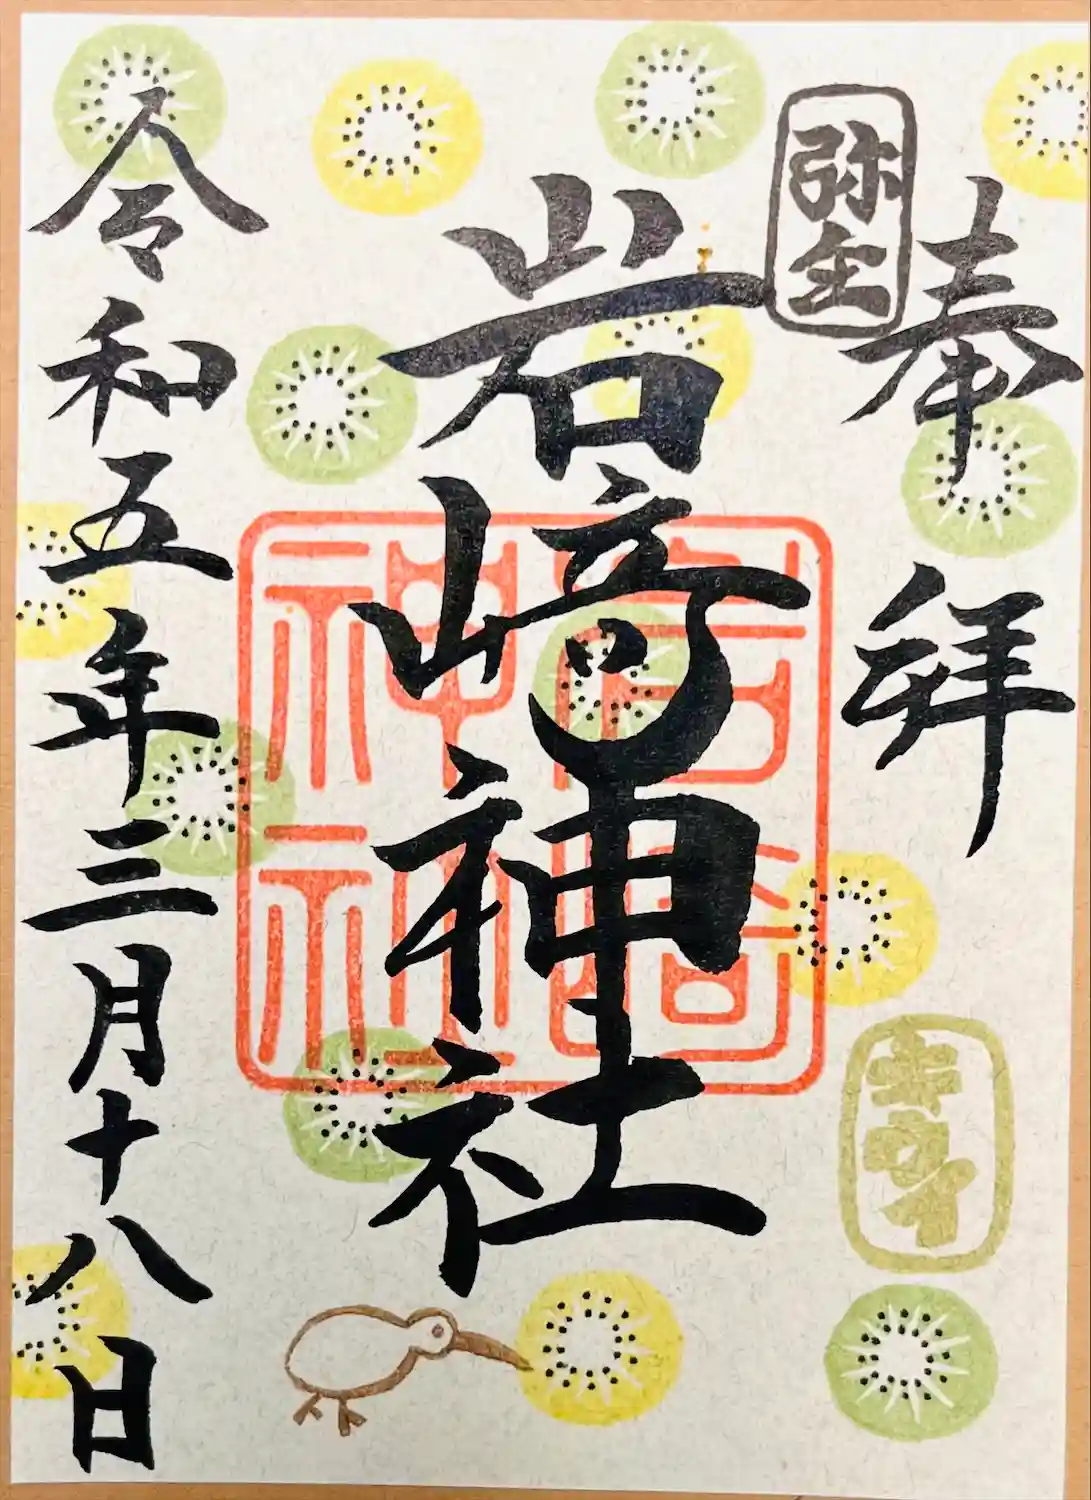 奉拝
弥生
幸ウイ
岩﨑神社
岩崎
神社
令和五年三月十八日